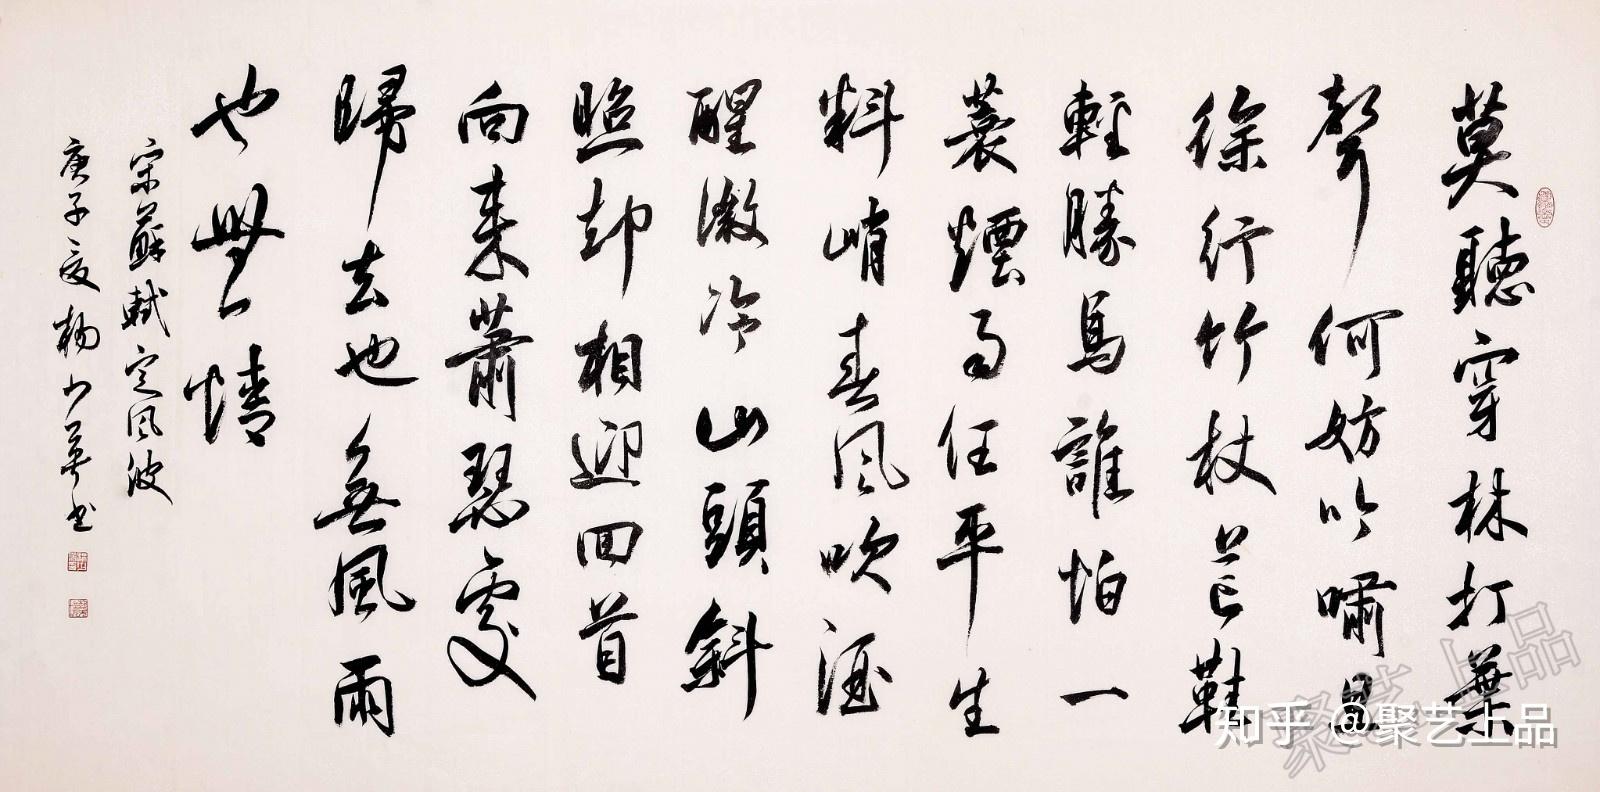 莫聽穿林打葉
聲何妨吟嘯且
徐行竹杖芒鞋
輕勝馬誰怕一
蓑煙雨任平生
料峭春風吹酒
醒微冷山頭斜
照却相迎回首
向來蕭瑟處
歸去也無風雨
也無情
宋蘇軾定風波
庚子夏楊少英書
知乎 @聚艺上品
聚艺上品